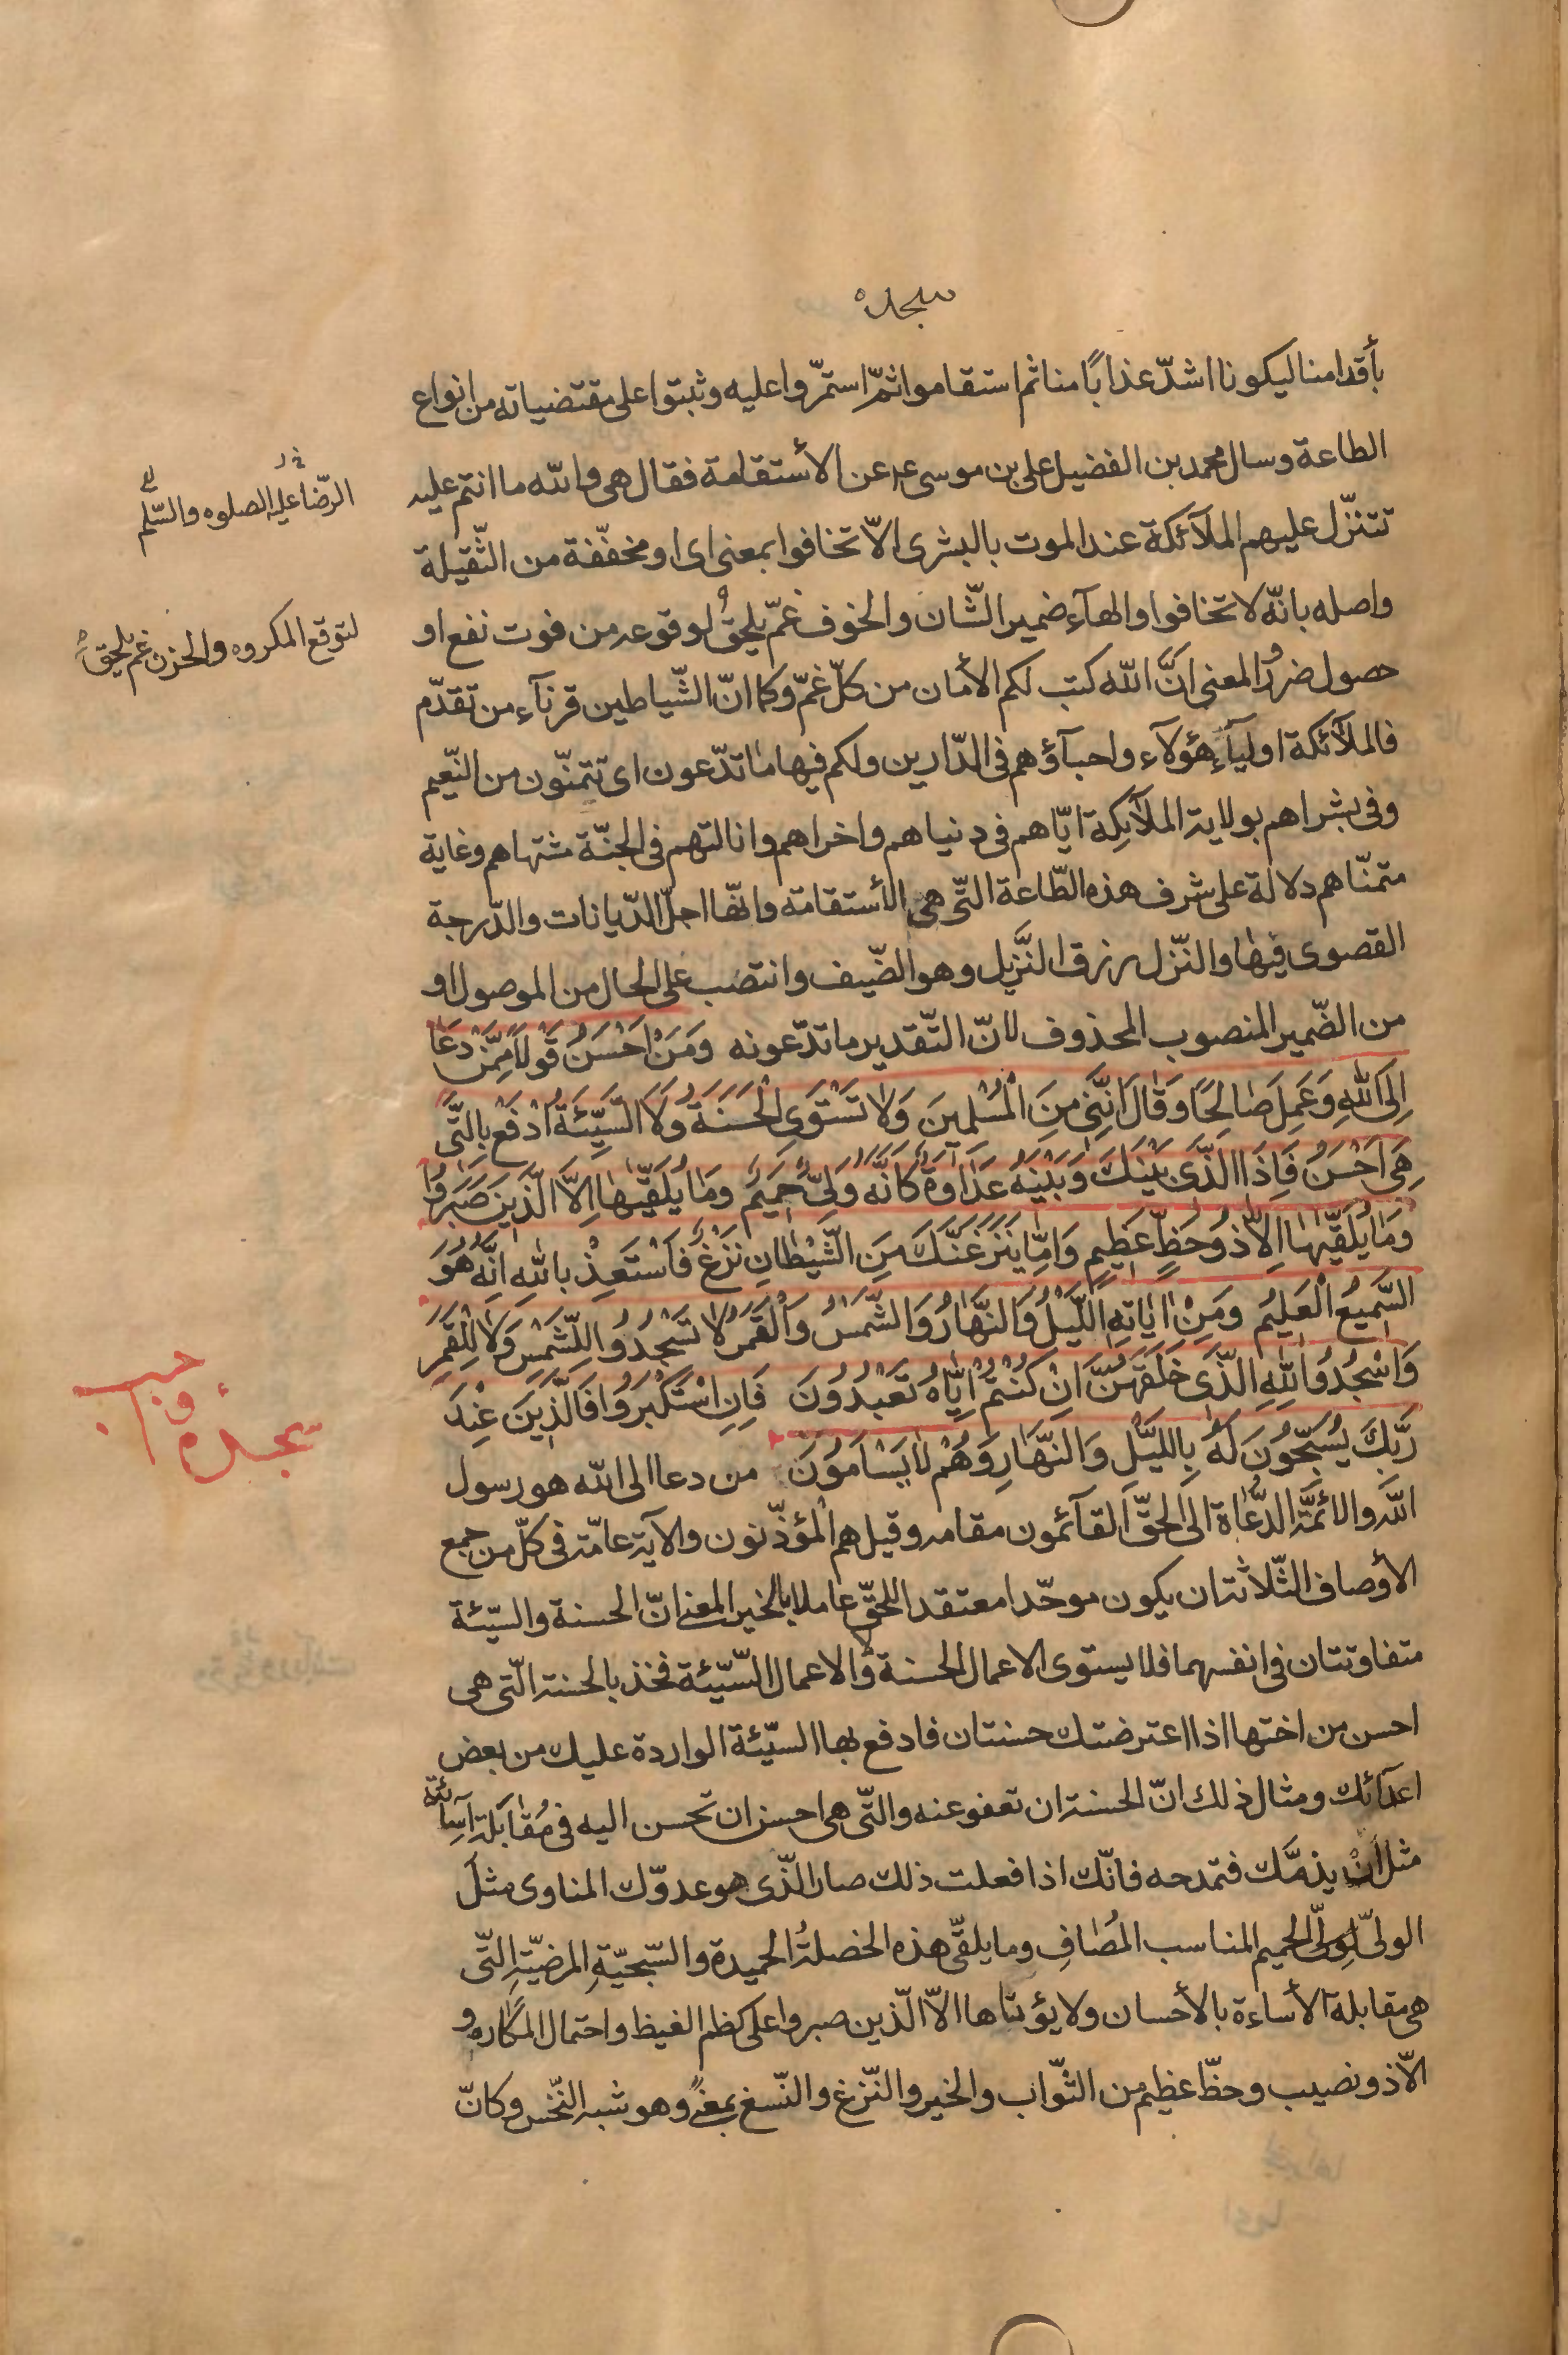 سجده
بأقدامنا ليكونا اشدّ عذابًا منا ثم استقاموا ثمّ استمرّوا عليه وثبتوا على مقتضياته من انواع
الطاعة وسال محمد بن الفضيل على بن موسى ع عن الأستقامة فقال هى والله ما انتم عليه
الرّضا عليه الصلوه والسّلم
تتنزّل عليهم الملآئكة عند الموت بالبشرى الّا تخافوا بمعنى اى او مخففّة من الثّقيلة
واصله بانّه لا تخافوا والهآء ضمير الشّان والخوف غمّ يلحق لوقوعه من فوت نفع او
لتوقع المكروه والحزن غم يلحق
حصول ضرر المعنى انّ الله كتب لكم الأمان من كلّ غمّ وكما انّ الشّياطين قرنآء من تقدّم
فالملآئكة اوليآء هؤلاء واحبآؤهم فى الدّارين ولكم فيها ما تدّعون اى تتمنّون من النّعيم
وفى بشراهم بولاية الملآئكة ايّاهم فى دنياهم واخراهم وانالتهم فى الجنّة مشتهاهم وغاية
متمنّاهم دلالة على شرف هذه الطّاعة التّى هى الأستقامة وانّها اجلّ الدّيانات والدّرجة
القصوى فيها والنّزل رزق النّزيل وهو الضّيف وانتصب على الحال من الموصول او
من الضّمير المنصوب المحذوف لانّ التّقدير ما تدّعونه وَمَنْ اَحْسَنُ قَوْلًا مِمَّنْ دَعَا
اِلَى اللهِ وَعَمِلَ صَالِحًا وَقَالَ اِنَّنِى مِنَ الْمُسْلِمينَ وَلا تَسْتَوِى الْحَسَنَةُ وَلَا السَّيِّئَةُ اُدْفَعْ بِالَّتى
هِىَ اَحْسَنُ فَاِذَا الَّذى بَيْنَكَ وَبَيْنَهُ عَدَاوَةٌ كَاَنَّهُ وَلِىٌّ حَميمٌ وَمَا يُلَقّيهَا اِلَّا الَّذينَ صَبَرُوا
وَمَا يُلَقّيهَا اِلَّا ذُو حَظٍّ عَظيمٍ وَاِمَّا يَنْزَغَنَّكَ مِنَ الشَّيْطَانِ نَزْغٌ فَاسْتَعِذْ بِاللهِ اِنَّهُ هُوَ
السَّميعُ الْعَليمُ وَمِنْ اَيَاتِهِ اللَّيْلُ وَالنَّهَارُ وَالشَّمْسُ وَالْقَمَرُ لا تَسْجُدُوا لِلشَّمْسِ وَلا لِلْقَمَرِ
وَاسْجُدُوا لِلهِ الَّذى خَلَقَهُنَّ اِنْ كُنْتُمْ اِيَّاهُ تَعْبُدُونَ فَاِنِ اسْتَكْبَرُوا فَالَّذينَ عِنْدَ
سجده واجب
رَبِّكَ يُسَبِّحُونَ لَهُ بِاللَّيْلِ وَالنَّهَارِ وَهُمْ لا يَسْاَمُونَ من دعا الى الله هو رسول
الله والائمّة الدّعاة الى الحقّ القآئمون مقامه وقيل هم المؤذّنون والآية عامّة فى كلّ من جمع
الأوصاف الثّلاثة ان يكون موحّدا معتقدا للحقّ عاملا بالخير المعنى انّ الحسنة والسّيّئة
متفاوتتان فى انفسهما فلا يستوى الاعمال الحسنة ولا الاعمال السّيّئة فخذ بالحسنة الّتى هى
احسن من اختها اذا اعترضتك حسنتان فادفع بها السّيّئة الواردة عليك من بعض
اعدآئك ومثال ذلك انّ الحسنة ان تعفو عنه والّتى هى احسن ان تحسن اليه فى مُقابَلة اسائته
مثل ان يذمّك فتمدحه فانّك اذا فعلت ذلك صار الّذى هو عدوّك المناوى مثل
الولىّ لولىّ الحميم المناسب المُصَافِ وما يلقّى هذه الخصلةُ الحميدة والسّجيّةِ المرضيّةِ التّى
هى مقابلة الأساءة بالأحسان ولا يؤتاها الّا الّذين صبروا على كظم الغيظ واحتمال المكاره و
الّا ذو نصيب وحظّ عظيم من الثّواب والخير والنّزغ والنّسغ بمعنًى وهو شبه النّخس وكانّ